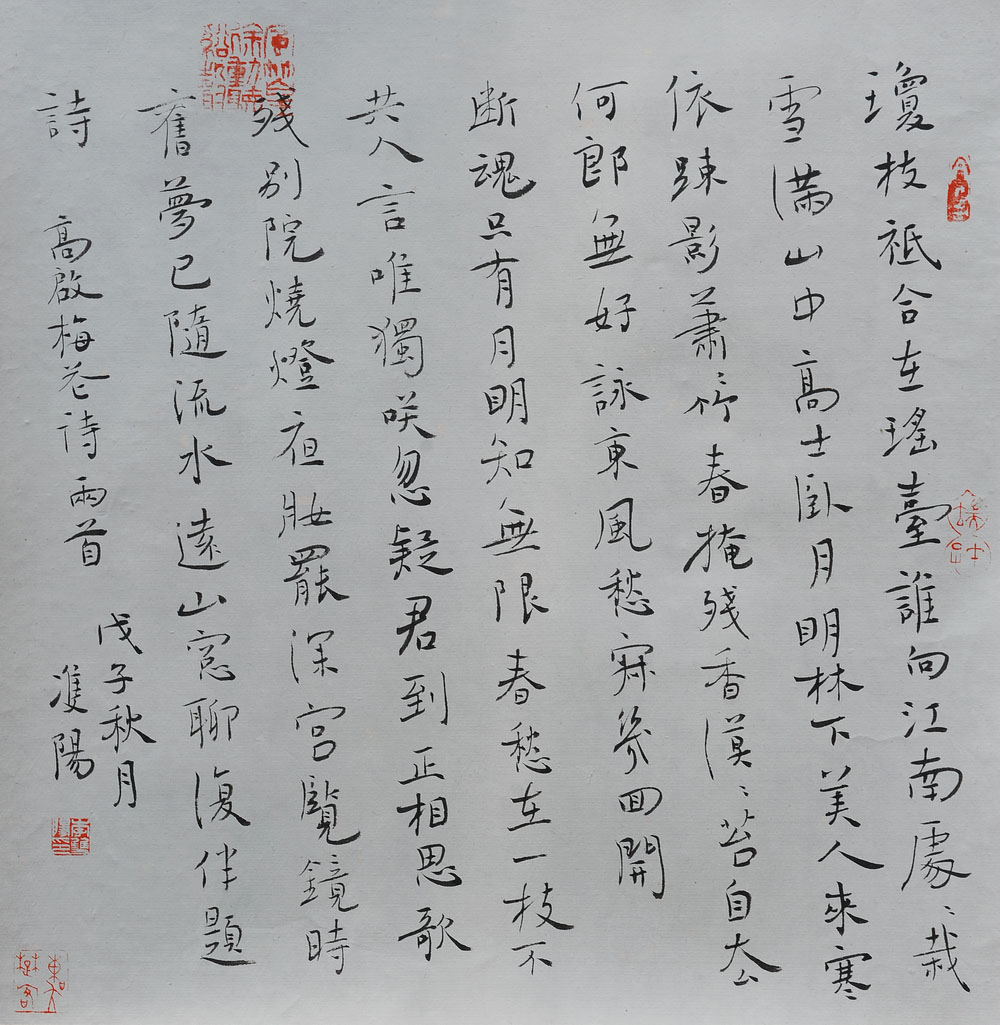 瓊枝祗合在瑤臺誰向江南處〻栽
雪滿山中高士臥月明林下美人來寒
依疎影蕭〻竹春掩殘香漠〻苔自去
何郎無好詠東風愁寂幾回開
断魂只有月明知無限春愁在一枝不
共人言唯獨咲忽疑君到正相思歌
殘別院燒燈夜妝罷深宮覽鏡時
舊夢已隨流水遠山窓聊復伴題
詩 高啟梅花诗兩首
戊子秋月
雙陽